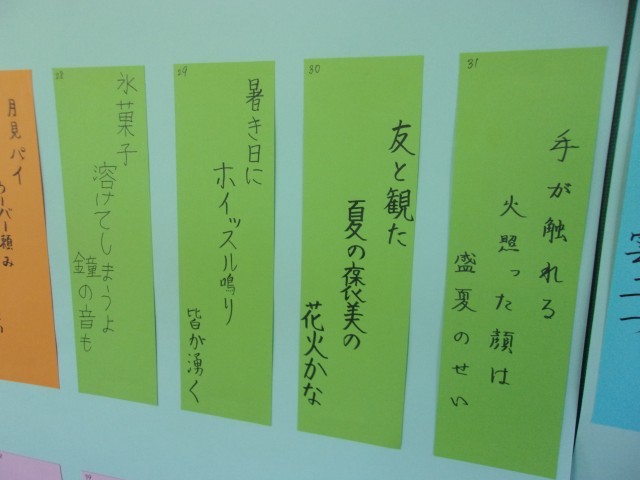 月見パイ
28
氷菓子
溶けてしまうよ
鐘の音も
29
暑き日に
ホイッスル鳴り
皆が湧く
30
友と観た
夏の褒美の
花火かな
31
手が触れる
火照った顔は
盛夏のせい